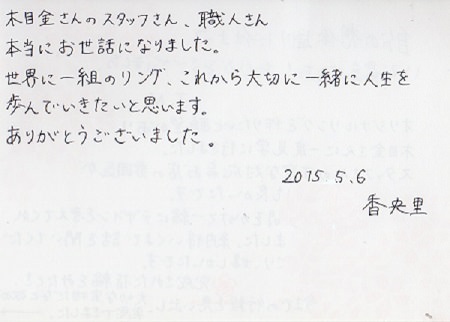 木目金さんのスタッフさん、職人さん
本当にお世話になりました。
世界に一組のリング、これから大切に一緒に人生を
歩んでいきたいと思います。
ありがとうございました。
2015.5.6
香央里